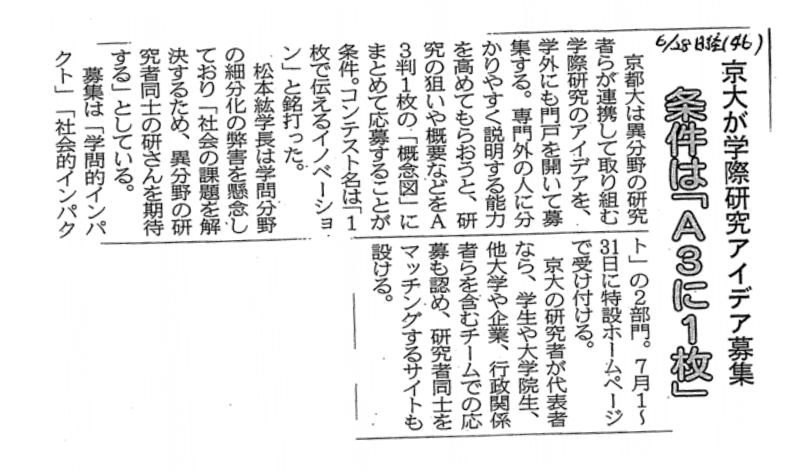 6/28 日経(46)
京大が学際研究アイデア募集
条件は「A3に1枚」
京都大は異分野の研究
者らが連携して取り組む
学際研究のアイデアを、
学外にも門戸を開いて募
集する。専門外の人に分
かりやすく説明する能力
を高めてもらおうと、研
究の狙いや概要などをA
3判1枚の「概念図」に
まとめて応募することが
条件。コンテスト名は「1
枚で伝えるイノベーショ
ン」と銘打った。
松本紘学長は学問分野
の細分化の弊害を懸念し
ており「社会の課題を解
決するため、異分野の研
究者同士の研さんを期待
する」としている。
募集は「学問的インパ
クト」「社会的インパク
ト」の2部門。7月1〜
31日に特設ホームページ
で受け付ける。
京大の研究者が代表者
なら、学生や大学院生、
他大学や企業、行政関係
者らを含むチームでの応
募も認め、研究者同士を
マッチングするサイトも
設ける。